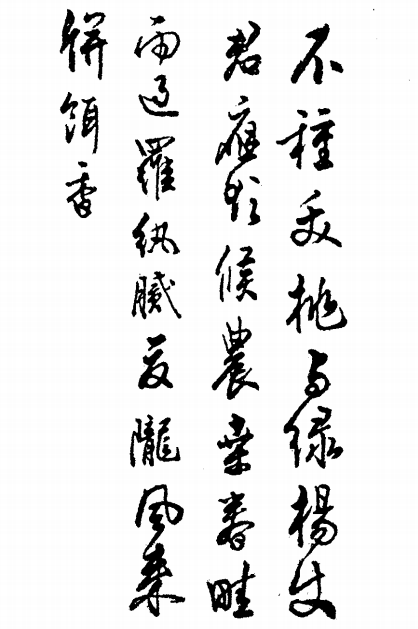 不種夭桃与綠楊使
君應欲候農桑春畦
雨過羅紈膩夏隴風來
餅餌香